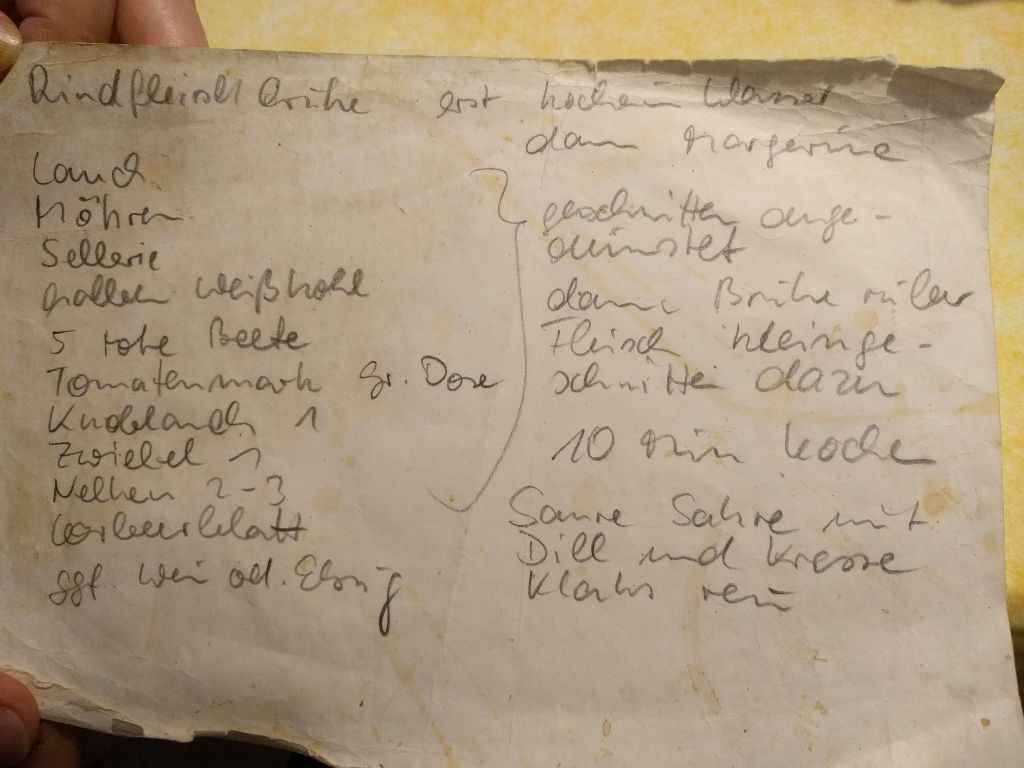 Rindfleischbrühe erst kochen in Wasser
dann Margerine
Lauch
Möhren
Sellerie
Weißkohl
5 rote Beete
Tomatenmark gr. Dose
Knoblauch 1
Zwiebel 1
Nelken 2-3
Lorbeerblatt
ggf. Wein od. Essig
geschnitten ange-
dünstet
dann Brühe rüber
Fleisch kleinge-
schnitten dazu
10 Min kochen
Saure Sahne mit
Dill und Kresse
Klaks rein